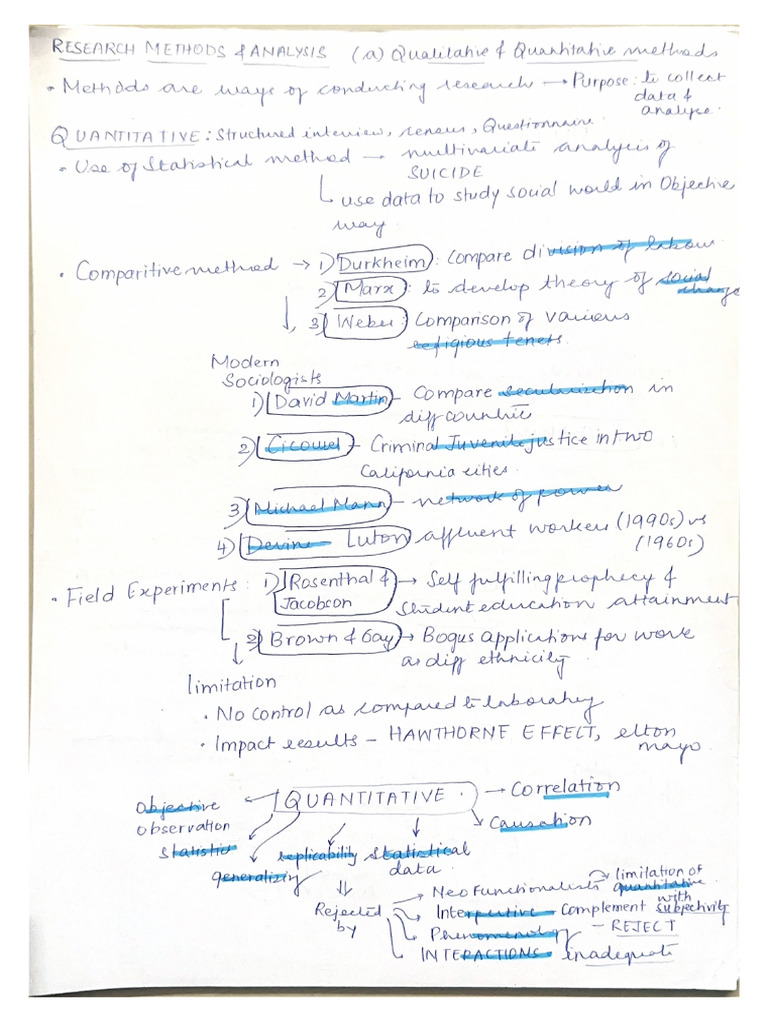 RESEARCH METHODS & ANALYSIS (a) Qualitative & Quantitative methods
• Methods are ways of conducting research → Purpose: to collect
data &
analyse.
QUANTITATIVE: Structured interview, census, Questionnaire.
• Use of Statistical method → multivariate analysis of
SUICIDE
use data to study social world in Objective
way.
• Comparitive method → 1) Durkheim: Compare division of labour
2) Marx: to develop theory of social
change
3) Weber: Comparison of various
religious tenets.
Modern
Sociologists
1) David Martin - Compare secularization in
diff countries
2) Cicourel - Criminal Juvenile justice in two
California cities.
3) Michael Mann - network of power
4) Devine Luton affluent workers (1990s) vs
(1960s)
• Field Experiments: 1) Rosenthal & → Self fulfilling prophecy &
Jacobson student education attainment
2) Brown & Gay → Bogus applications for work
as diff ethnicity.
limitation
• No control as compared to laboratory
• Impact results - HAWTHORNE EFFECT, elton
mayo.
QUANTITATIVE. → Correlation
Objective
observation
Causation
statistic
replicability statistical
data.
generalizing
⇓
Rejected
by
Neo Functionalists → limitation of
quantitative
Interpertive - Complement with
subjectivity
Phenomenology - REJECT
INTERACTIONS - inadequate